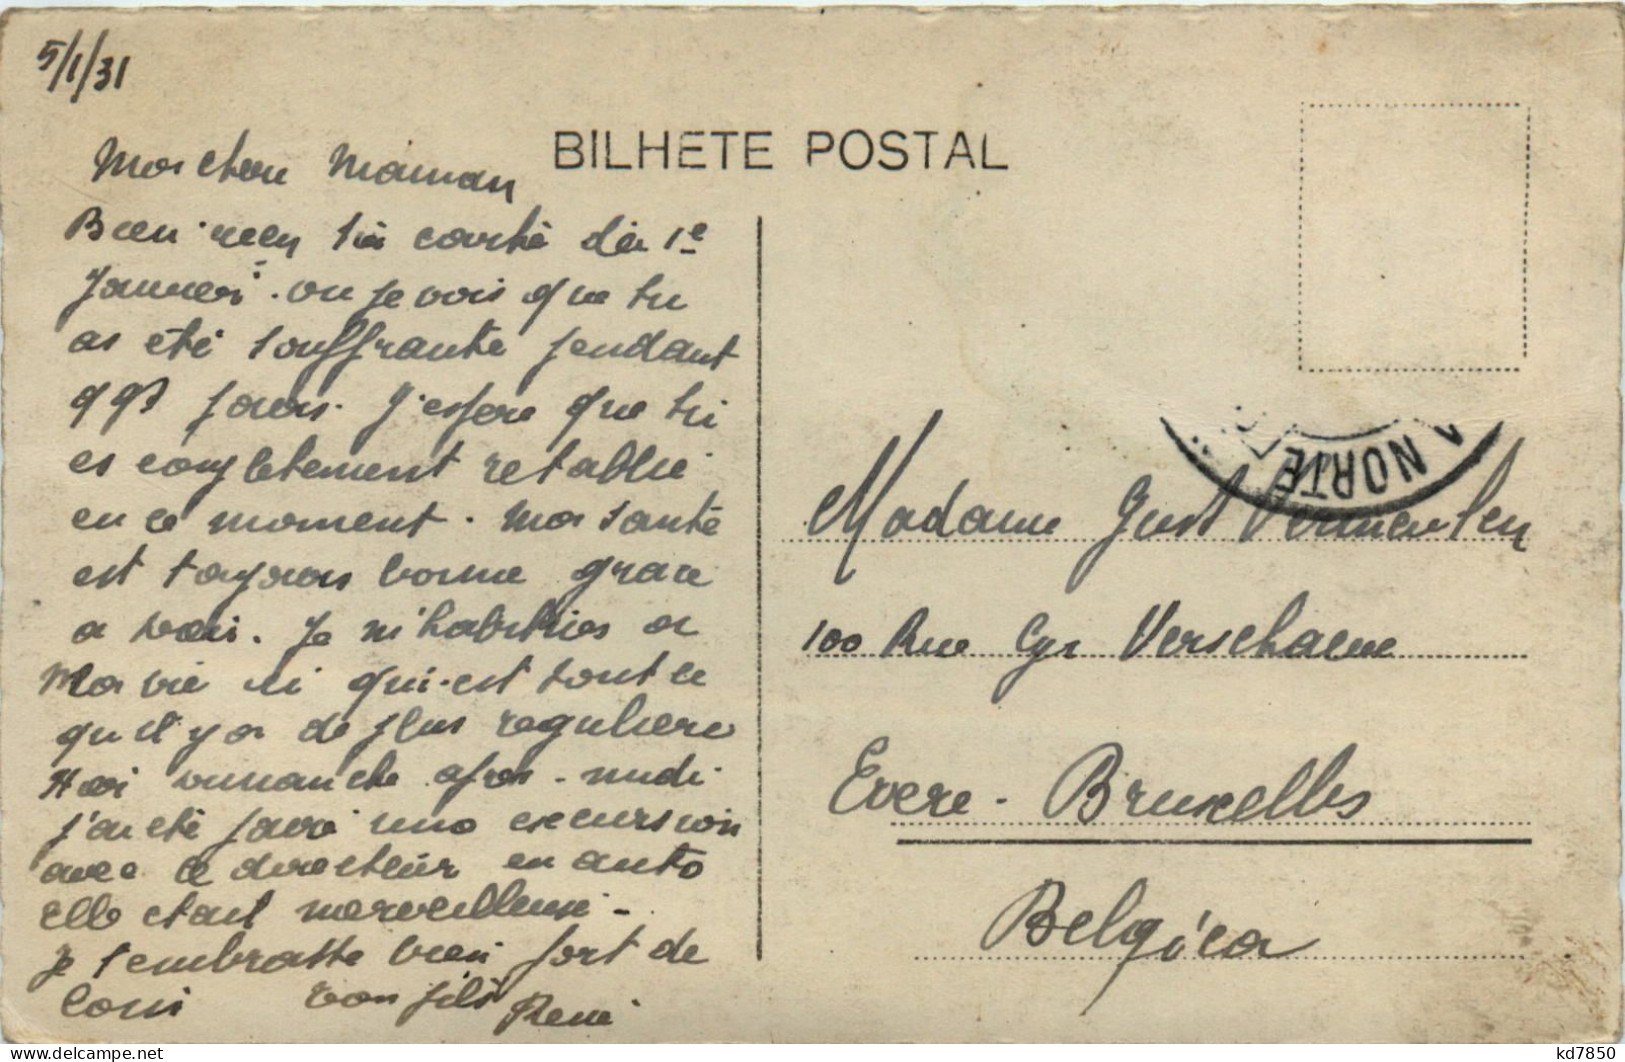 5/1/31
BILHETE POSTAL
Ma chere Maman
Bien reçu ta carte du 1e
Janvier. ou je vois que tu
as été souffrante pendant
qqs jours. J'espere que tu
es completement retablie
en ce moment. Ma santé
est toujours bonne grace
a Je m'habitues a
Ma vie ici qui est tout ce
qu'il y a de plus reguliere
Hier dimanche apres-midi
j'ai été faire une excursion
avec le directeur en auto
elle etait merveilleuse -
Je t'embrasse bien fort de
ton fils René
NORTE
Madame Gust Vermeulen
100 Rue Cyr Verschaeve
Evere - Bruxelles
Belgica
kd7850